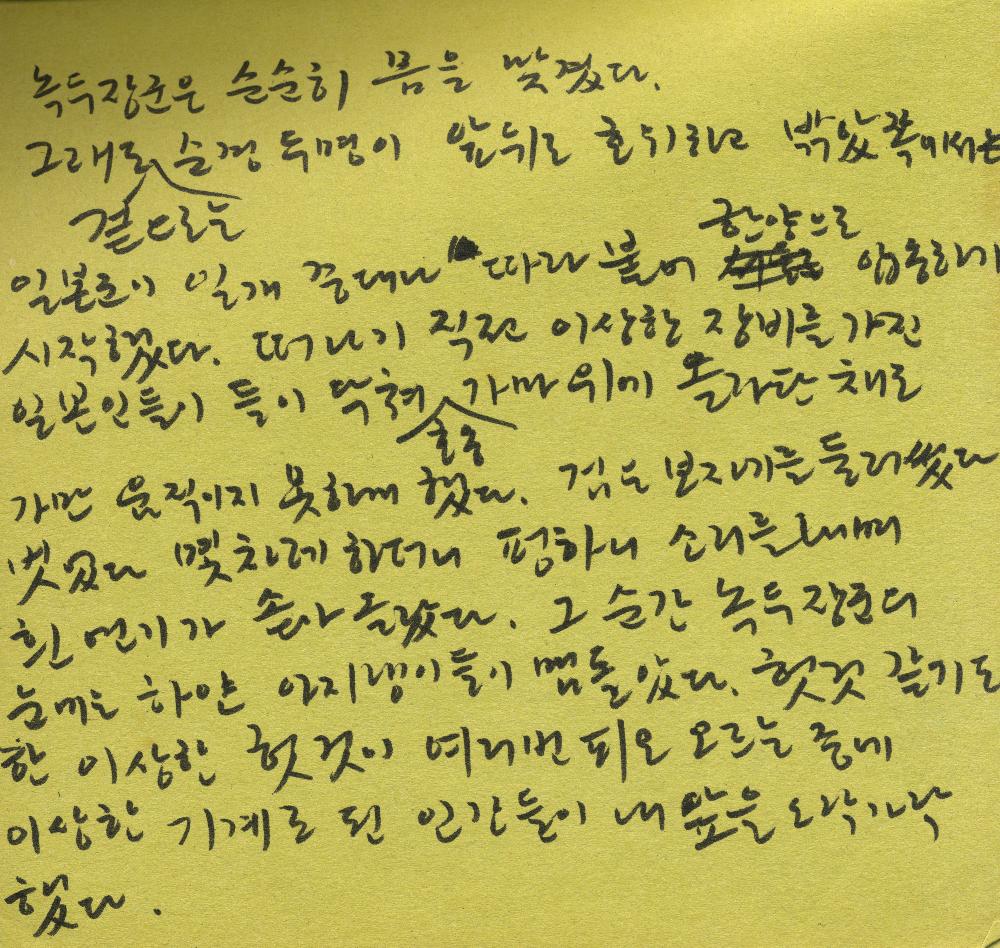 녹두장군은 순순히 몸을 맞겼다.
그래도 순경 두명이 앞뒤로 호위하고 밖앞쪽에서는
겉으로는
한양으로
일본군이 일개 중대나 따라 붙어 압송하기
시작했다. 떠나기 직전 이상한 장비를 가진
일본인들이 들이 닥쳐 가마위에 올라탄 채로
가만 움직이지 못하게 했다. 검은 보자기를 둘러썼다
벗었다 몇차례 하더니 펑하니 소리를 내며
흰 연기가 솟아 올랐다. 그 순간 녹두장군의
눈에는 하얀 아지랭이들이 맴돌았다. 헛것 같기도
한 이상한 헛것이 여러번 피오 오르는 중에
이상한 기계로 된 인간들이 내 앞을 오락가락
했다.